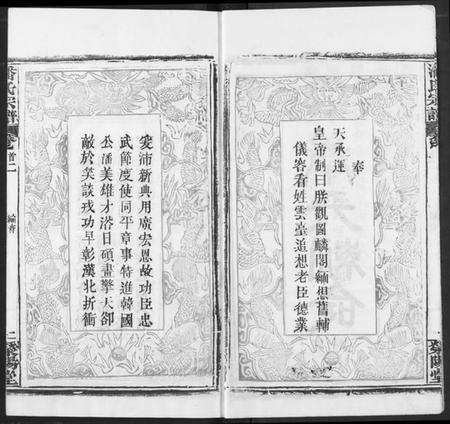 奉
天承運
皇帝制曰朕觀圖麟閣緬想舊輔
儀容看姓雲臺追想老臣德業
爰沛新典用廣宏恩故功臣忠
武節度使同平章事特進韓國
公潘美雄才浴日碩畫擎天卻
敵於笑談戎功早彰漢北折衝
潘氏宗譜
卷首二
綸音
二